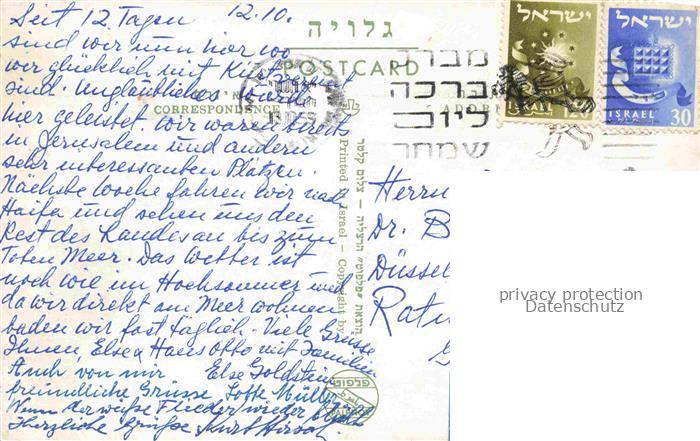 Seit 12 Tagen 12.10.
sind wir nun hier wo
wir glücklich mit Kurt vereint
sind. Unglaubliches wurde
hier geleistet. Wir waren bereits
in Jerusalem und andern
sehr interessanten Plätzen.
Nächste Woche fahren wir nach
Haifa und sehen uns den
Rest des Landes an bis zum
Toten Meer. Das Wetter ist
noch wie im Hochsommer und
da wir direkt am Meer wohnen
baden wir fast täglich. Viele Grüsse
Ihnen, Else & Hans Otto mit Familien
Auch von mir Else Goldstein
freundliche Grüsse Lotte Müller
Wenn der weiße Flieder wieder blüht
Herzliche Grüße Kurt Hirsch.
גלויה
POSTCARD
CORRESPONDENCE
ADDRE
מברך
ברכה
ליום
שמחה
ישראל
120
ישראל
ISRAEL 30
הוצאת "פלפוט" הרצליה — צלום פלטר
Printed in Israel — Copyright by
פלפוט
Herrn
Dr. B
Düssel
Ratin
privacy protection
Datenschutz